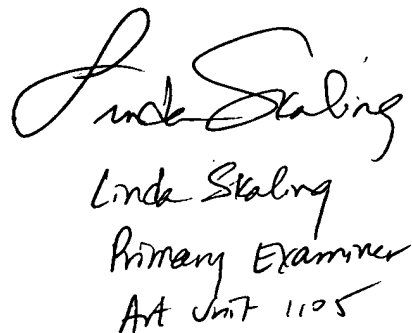 Linda Skaling
Linda Skaling
Primary Examiner
Art Unit 1105